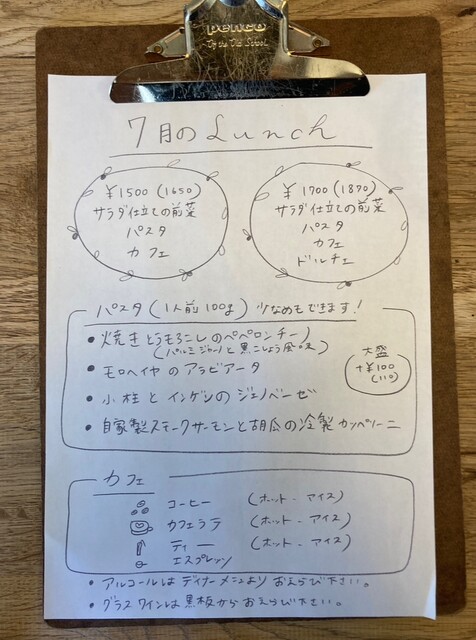 penco
By the Old School.
7月のLunch
¥1500 (1650)
サラダ仕立ての前菜
パスタ
カフェ
¥1700 (1870)
サラダ仕立ての前菜
パスタ
カフェ
ドルチェ
パスタ (1人前100g) 少なめもできます!
・焼きとうもろこしのペペロンチーノ
(パルミジャーノと黒こしょう風味)
・モロヘイヤのアラビアータ
・小柱とインゲンのジェノベーゼ
・自家製スモークサーモンと胡瓜の冷製カッペリーニ
大盛
+¥100
(110)
カフェ
コーヒー (ホット - アイス)
カフェラテ (ホット - アイス)
ティー (ホット - アイス)
エスプレッソ
・アルコールはディナーメニューよりおえらび下さい。
・グラスワインは黒板からおえらび下さい。